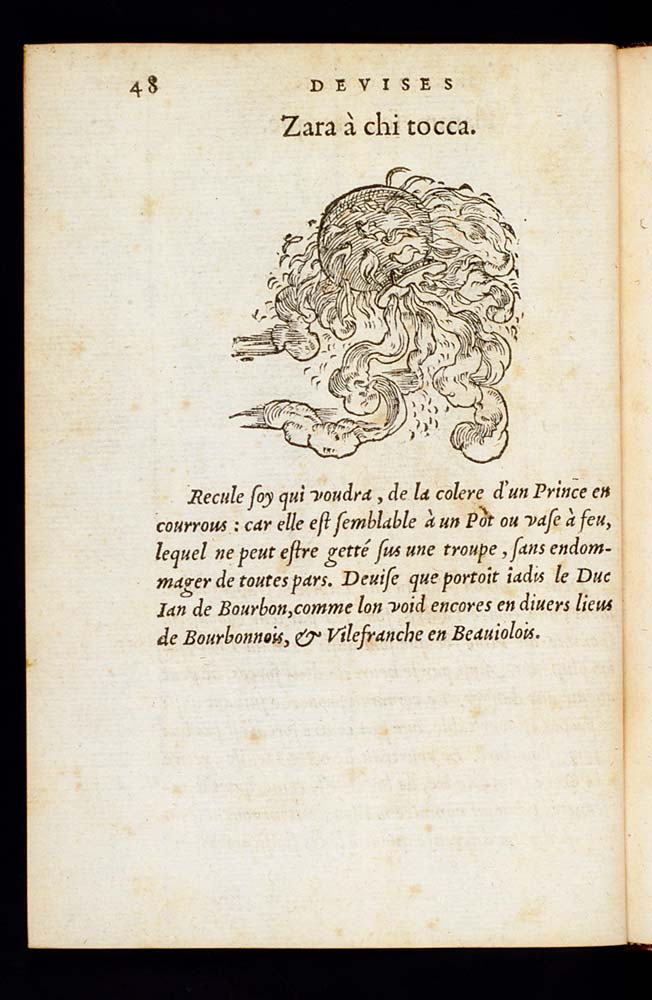 48 DEVISES
Zara à chi tocca.
Recule ſoy qui voudra, de la colere d'un Prince en
courrous : car elle eſt ſemblable à un Pòt ou vaſe à feu,
lequel ne peut eſtre getté ſus une troupe, ſans endom-
mager de toutes pars. Deuiſe que portoit iadis le Duc
Ian de Bourbon, comme lon void encores en diuers lieus
de Bourbonnois, & Vilefranche en Beauiolois.